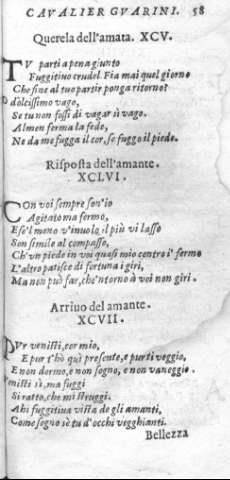 CAVALIER GVARINI. 58
Querela dell'amata. XCV.
TV parti a pena giunto
Fuggitiuo crudel. Fia mai quel giorno
Che fine al tuo partir ponga ritorno?
dolcissimo vago,
Se tu non fussi di vagar sì vago.
Almen ferma la fede,
Ne da me fugga il cor, se fuggo il piede.
Risposta dell'amante.
XCLVI.
CON voi sempre son'io
Agitato ma fermo,
E se'l meno v'inuolo, il più vi lasso
Son simile al compasso,
Ch'vn piede in voi quasi mio centro i' fermo
L'altro patisce di fortuna i giri,
Ma non può far, che'ntorno à voi non giri.
Arriuo del amante.
XCVII.
PVr venisti, cor mio,
E pur t'hò quì presente, e pur ti veggio,
E non dormo, e non sogno, e non vaneggio.
enisti sì, ma fuggi
Si ratto, che mi struggi.
Ahi fuggitiua vista de gli amanti,
Come sogno sè tu d'occhi vegghianti.
Bellezza